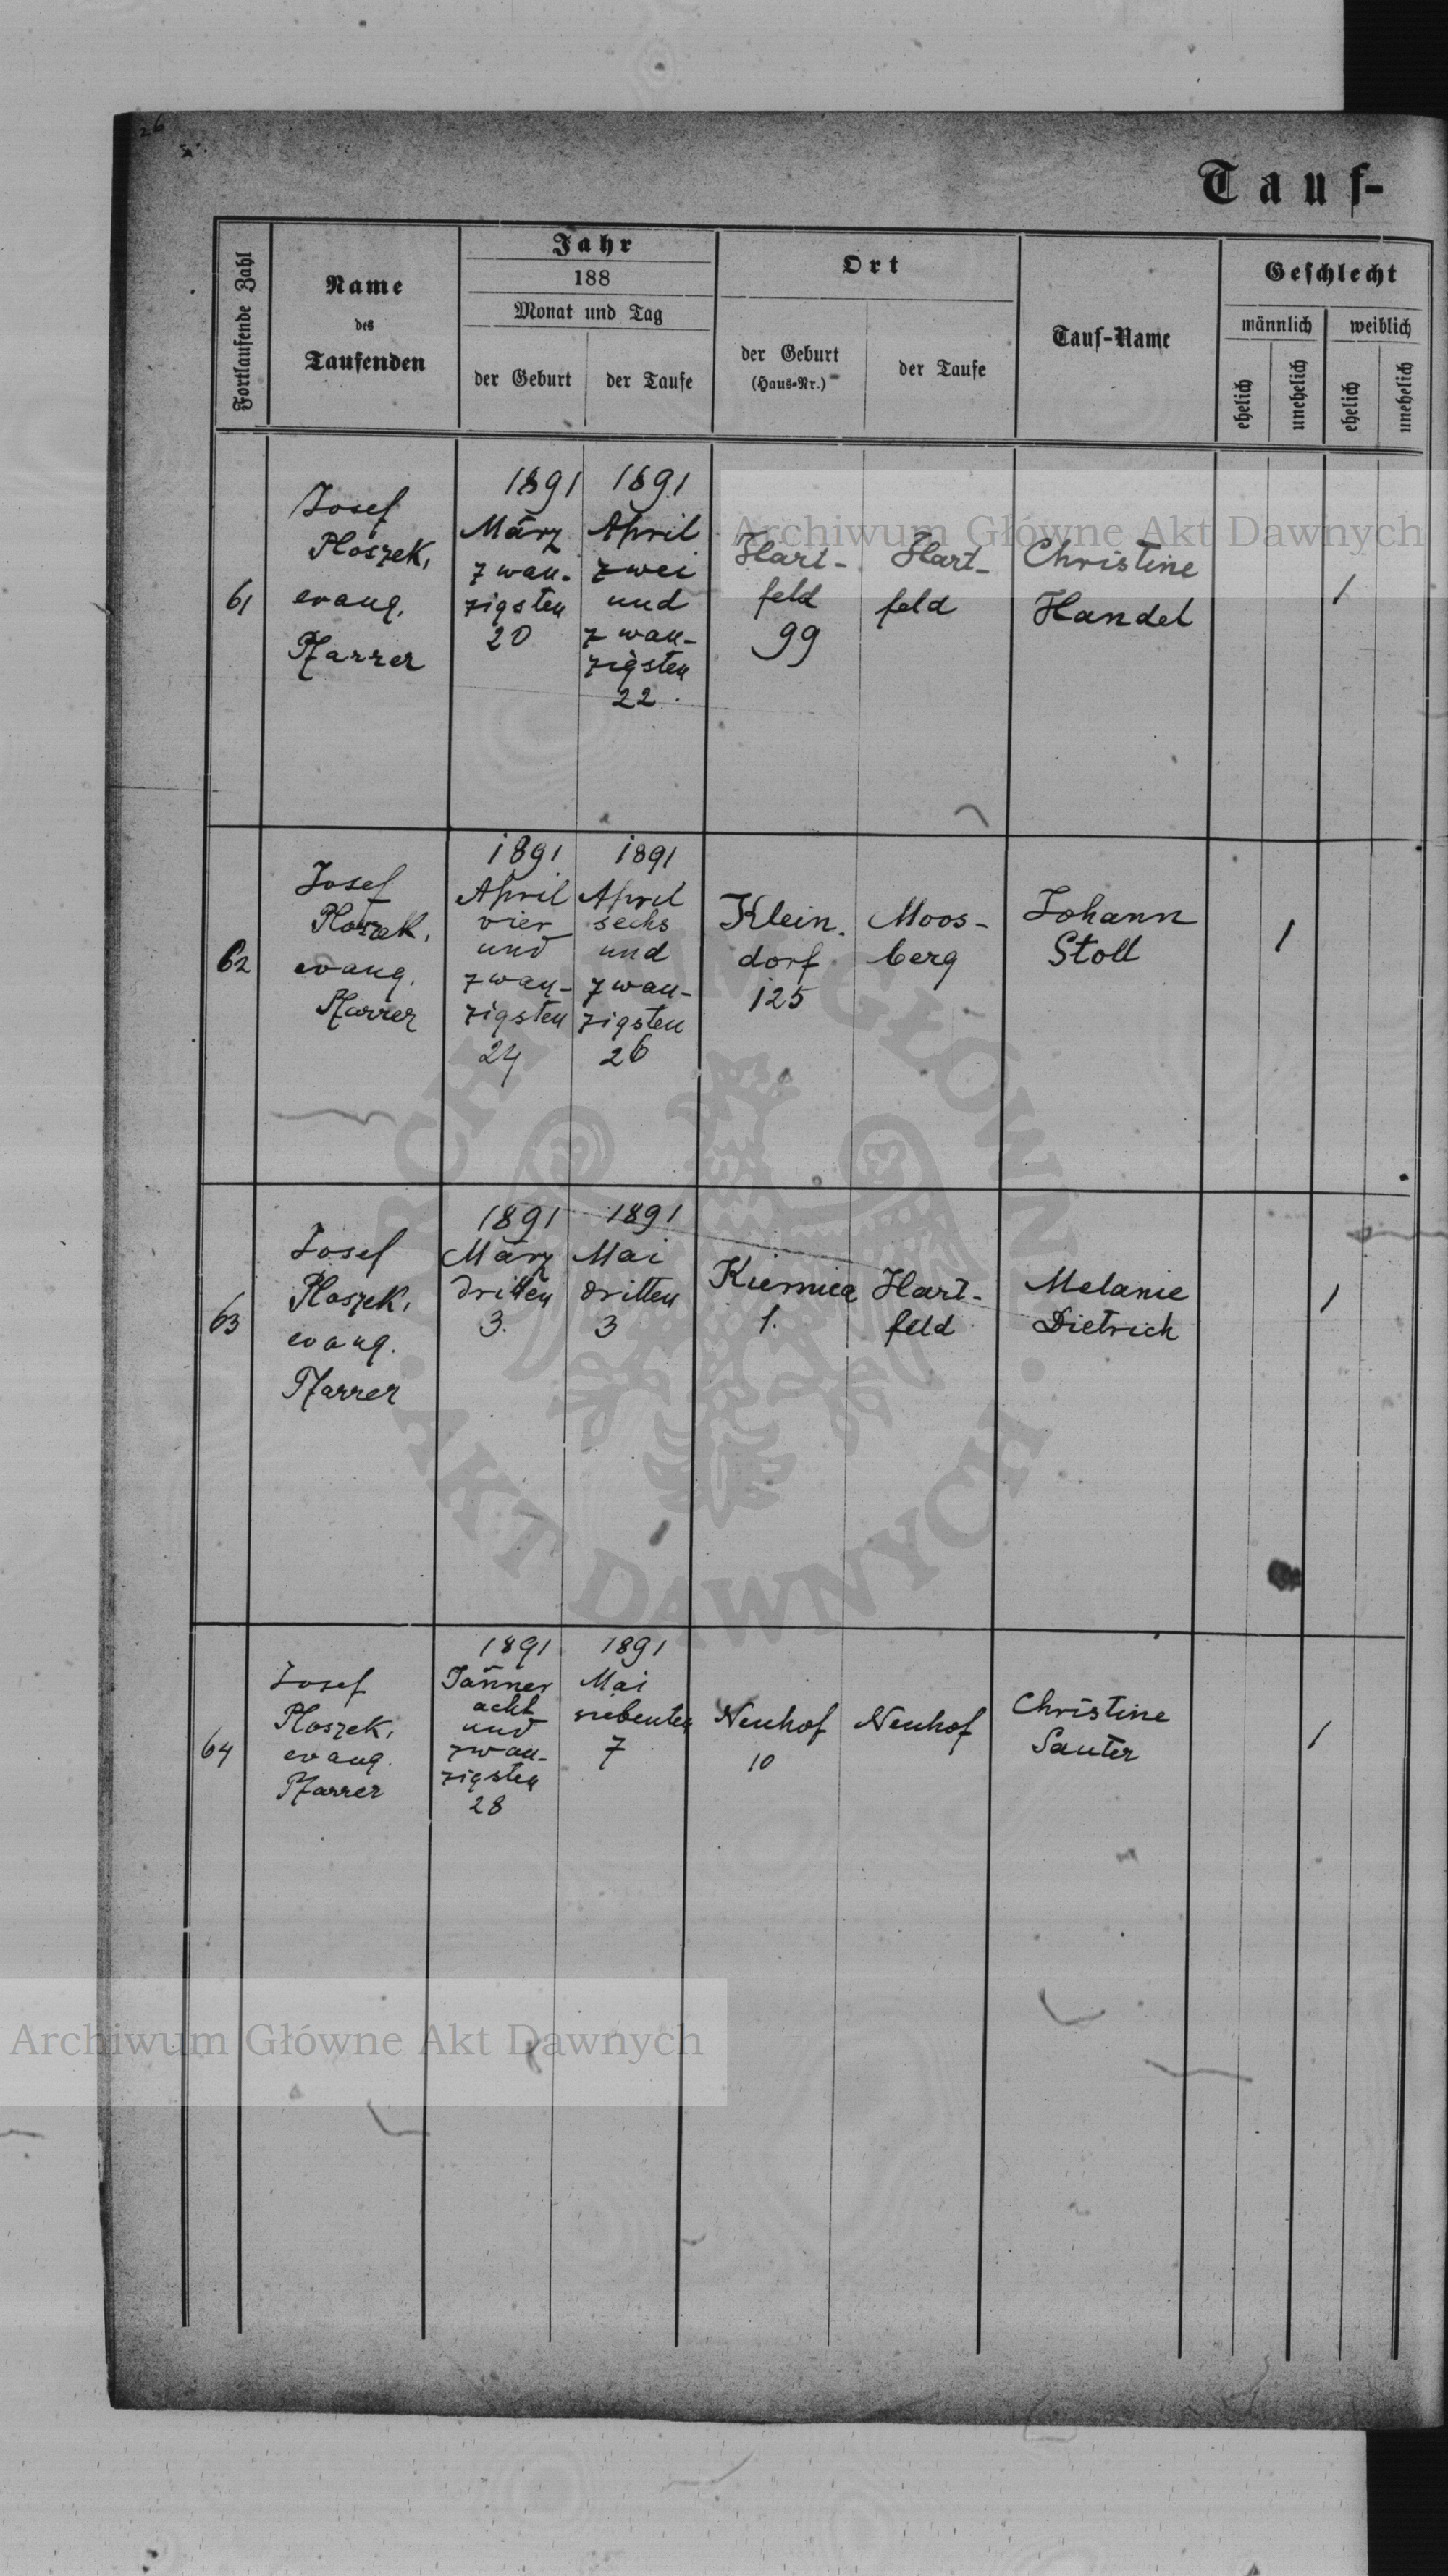 26
Tauf-
Fortlaufende Zahl
Name
des
Taufenden
Jahr
188
Monat und Tag
der Geburt
der Taufe
Ort
der Geburt
(Haus-Nr.)
der Taufe
Tauf-Name
Geschlecht
männlich
weiblich
ehelich
unehelich
ehelich
unehelich
61
Josef
Ploszek,
evang.
Pfarrer
1891
März
zwan-
zigsten
20
1891
April
zwei
und
zwan-
zigsten
22.
Hart-
feld
99
Hart-
feld
Christine
Handel
1
62
Josef
Ploszek,
evang.
Pfarrer
1891
April
vier
und
zwan-
zigsten
24
1891
April
sechs
und
zwan-
zigsten
26
Klein-
dorf
125
Moos-
berg
Johann
Stoll
1
63
Josef
Ploszek,
evang.
Pfarrer
1891
März
dritten
3.
1891
Mai
dritten
3
Kiernica
1.
Hart-
feld
Melanie
Dietrich
1
64
Josef
Ploszek,
evang.
Pfarrer
1891
Jänner
acht
und
zwan-
zigsten
28
1891
Mai
siebenten
7
Neuhof
10
Neuhof
Christine
Sauter
1
Archiwum Główne Akt Dawnych
ARCHIWUM GŁÓWNE
AKT DAWNYCH
Archiwum Główne Akt Dawnych